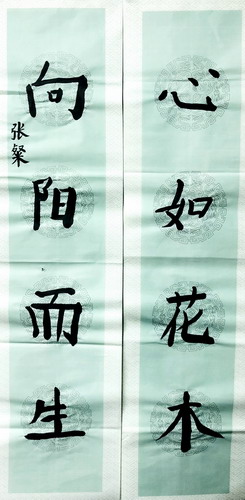 心如花木
向阳而生
张粲